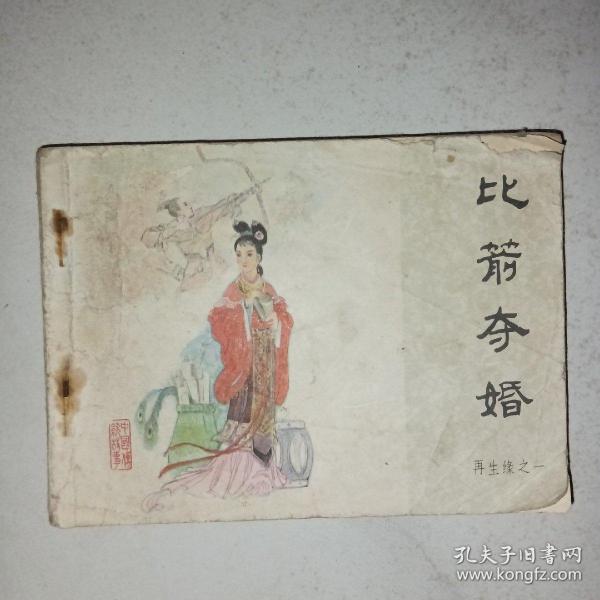 比箭夺婚
再生缘之一
中国传
统故事
孔夫子旧书网
www.kongfz.com